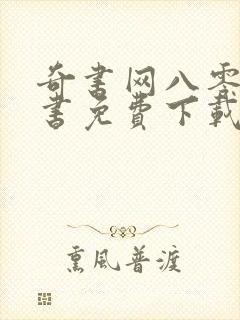 奇書网八零
書免費下載
熏風普渡